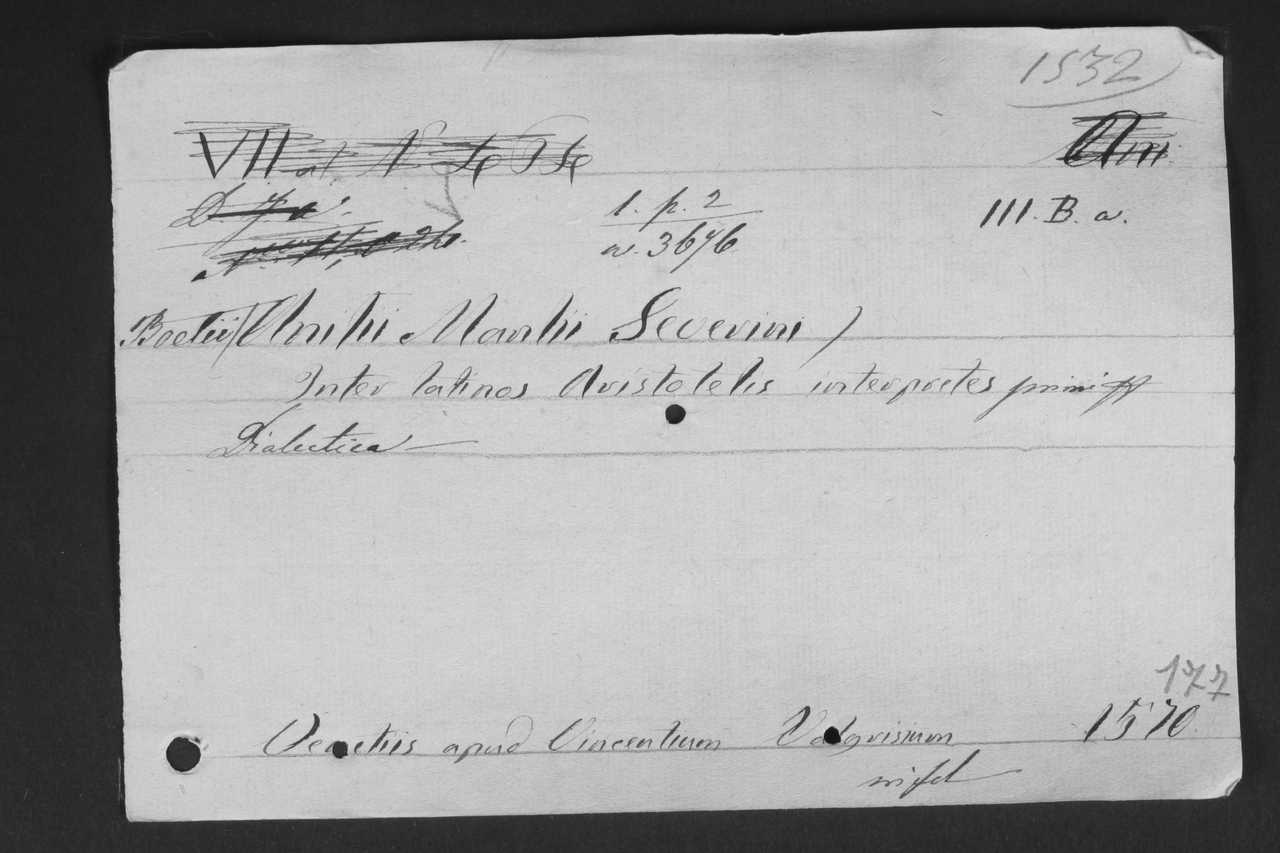 1532
VII
1. p. 2
III. B. a.
a. 3676
Boetii (Anitii Manlii Severini)
Inter latinos Aristotelis interpretes primi
Dialectica
177
Venetiis apud Vincentium Valgrisium 1570.